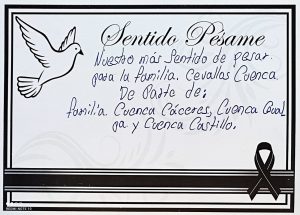 Sentido Pésame
Nuestro más sentido de pesar.
para la familia. Cevallos Cuenca
De Parte de:
familia Cuenca Cáceres, Cuenca Gual
pa y Cuenca Castillo.
REDMI NOTE 10